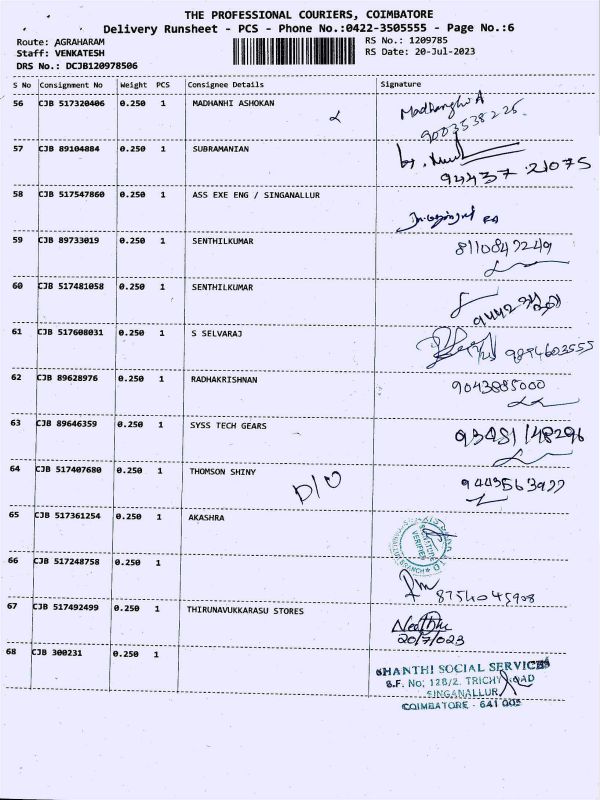 THE PROFESSIONAL COURIERS, COIMBATORE
Delivery Runsheet - PCS - Phone No.:0422-3505555 - Page No.:6
Route: AGRAHARAM RS No.: 1209785
Staff: VENKATESH RS Date: 20-Jul-2023
DRS No.: DCJB120978506
S No Consignment No Weight PCS Consignee Details Signature
56 CJB 517320406 0.250 1 MADHANHI ASHOKAN
9003538225
57 CJB 89104884 0.250 1 SUBRAMANIAN
94437 21075
58 CJB 517547860 0.250 1 ASS EXE ENG / SINGANALLUR
59 CJB 89733019 0.250 1 SENTHILKUMAR 8110847249
60 CJB 517481058 0.250 1 SENTHILKUMAR
61 CJB 517608031 0.250 1 S SELVARAJ 9894603555
62 CJB 89628976 0.250 1 RADHAKRISHNAN 9043885000
63 CJB 89646359 0.250 1 SYSS TECH GEARS 93451/48296
64 CJB 517407680 0.250 1 THOMSON SHINY
D/U
65 CJB 517361254 0.250 1 AKASHRA
VERIFIED
66 CJB 517248758 0.250 1
8754045908
67 CJB 517492499 0.250 1 THIRUNAVUKKARASU STORES
20/7/023
68 CJB 300231 0.250 1
SHANTHI SOCIAL SERVICES
S.F. No: 128/2. TRICHY ROAD
SINGANALLUR
COIMBATORE - 641 005